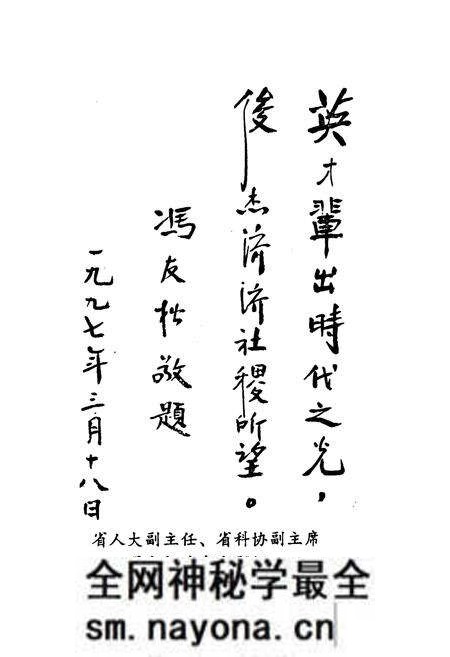 英才輩出時代之光，
俊杰济济社稷所望。
馮友松敬題
一九九七年三月十八日
省人大副主任、省科协副主席
全网神秘学最全
sm.nayona.cn